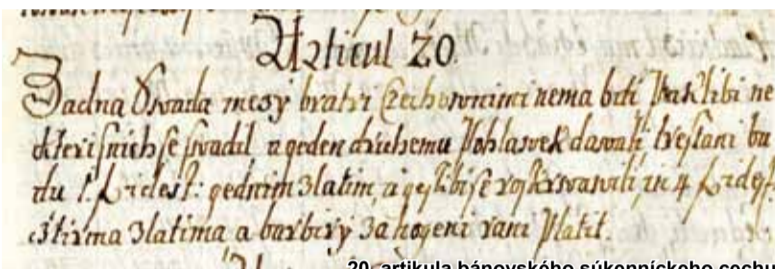 Articul 20.
Žadna Swada mezy bratri Czechownimi nema biti Pak libi ne
kteri snich se swadil a geden druhemu Pohlawek dawali trestani bu
du f. 1. id est: gednim Zlatim, a gestlibi se roskrwawili, in 4 f. id est
čtirma Zlatima a barbiry za hogeni rani Platit.
20. artikula bánovského súkenníckeho cechu